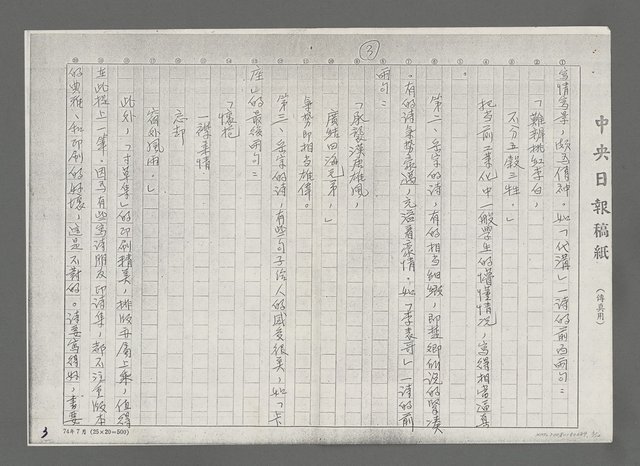 中央日報稿紙
(傳真用)
③
寫情寫景,頗為傳神。如「代溝」一詩的前面兩句:
「難辨桃紅李白,
不分五穀三牲。」
把當前工業化中一般學生的懵懂情況,寫得相當逼真
。
第二、岳宗的詩,有的相當細緻,即楚卿所說的緊湊
。有的詩氣勢豪邁,充滿著豪情。如「李表哥」一詩的前
兩句:
「承襲漢唐雄風,
廣結四海兄弟,」
氣勢即相當雄偉。
第三、岳宗的詩,有些句子給人的感受很美,如「卡
座」的最後兩句:
「懷抱
一襟柔情
忘却
窗外風雨。」
此外,「寸草集」的印刷精美,排版再屬上乘,值得
在此提上一筆。因為有些寫詩朋友印詩集,都不注重版本
的典雅、和印刷的好壞,這是不對的。詩要寫得好,書要
74年7月(25×20=500)
3